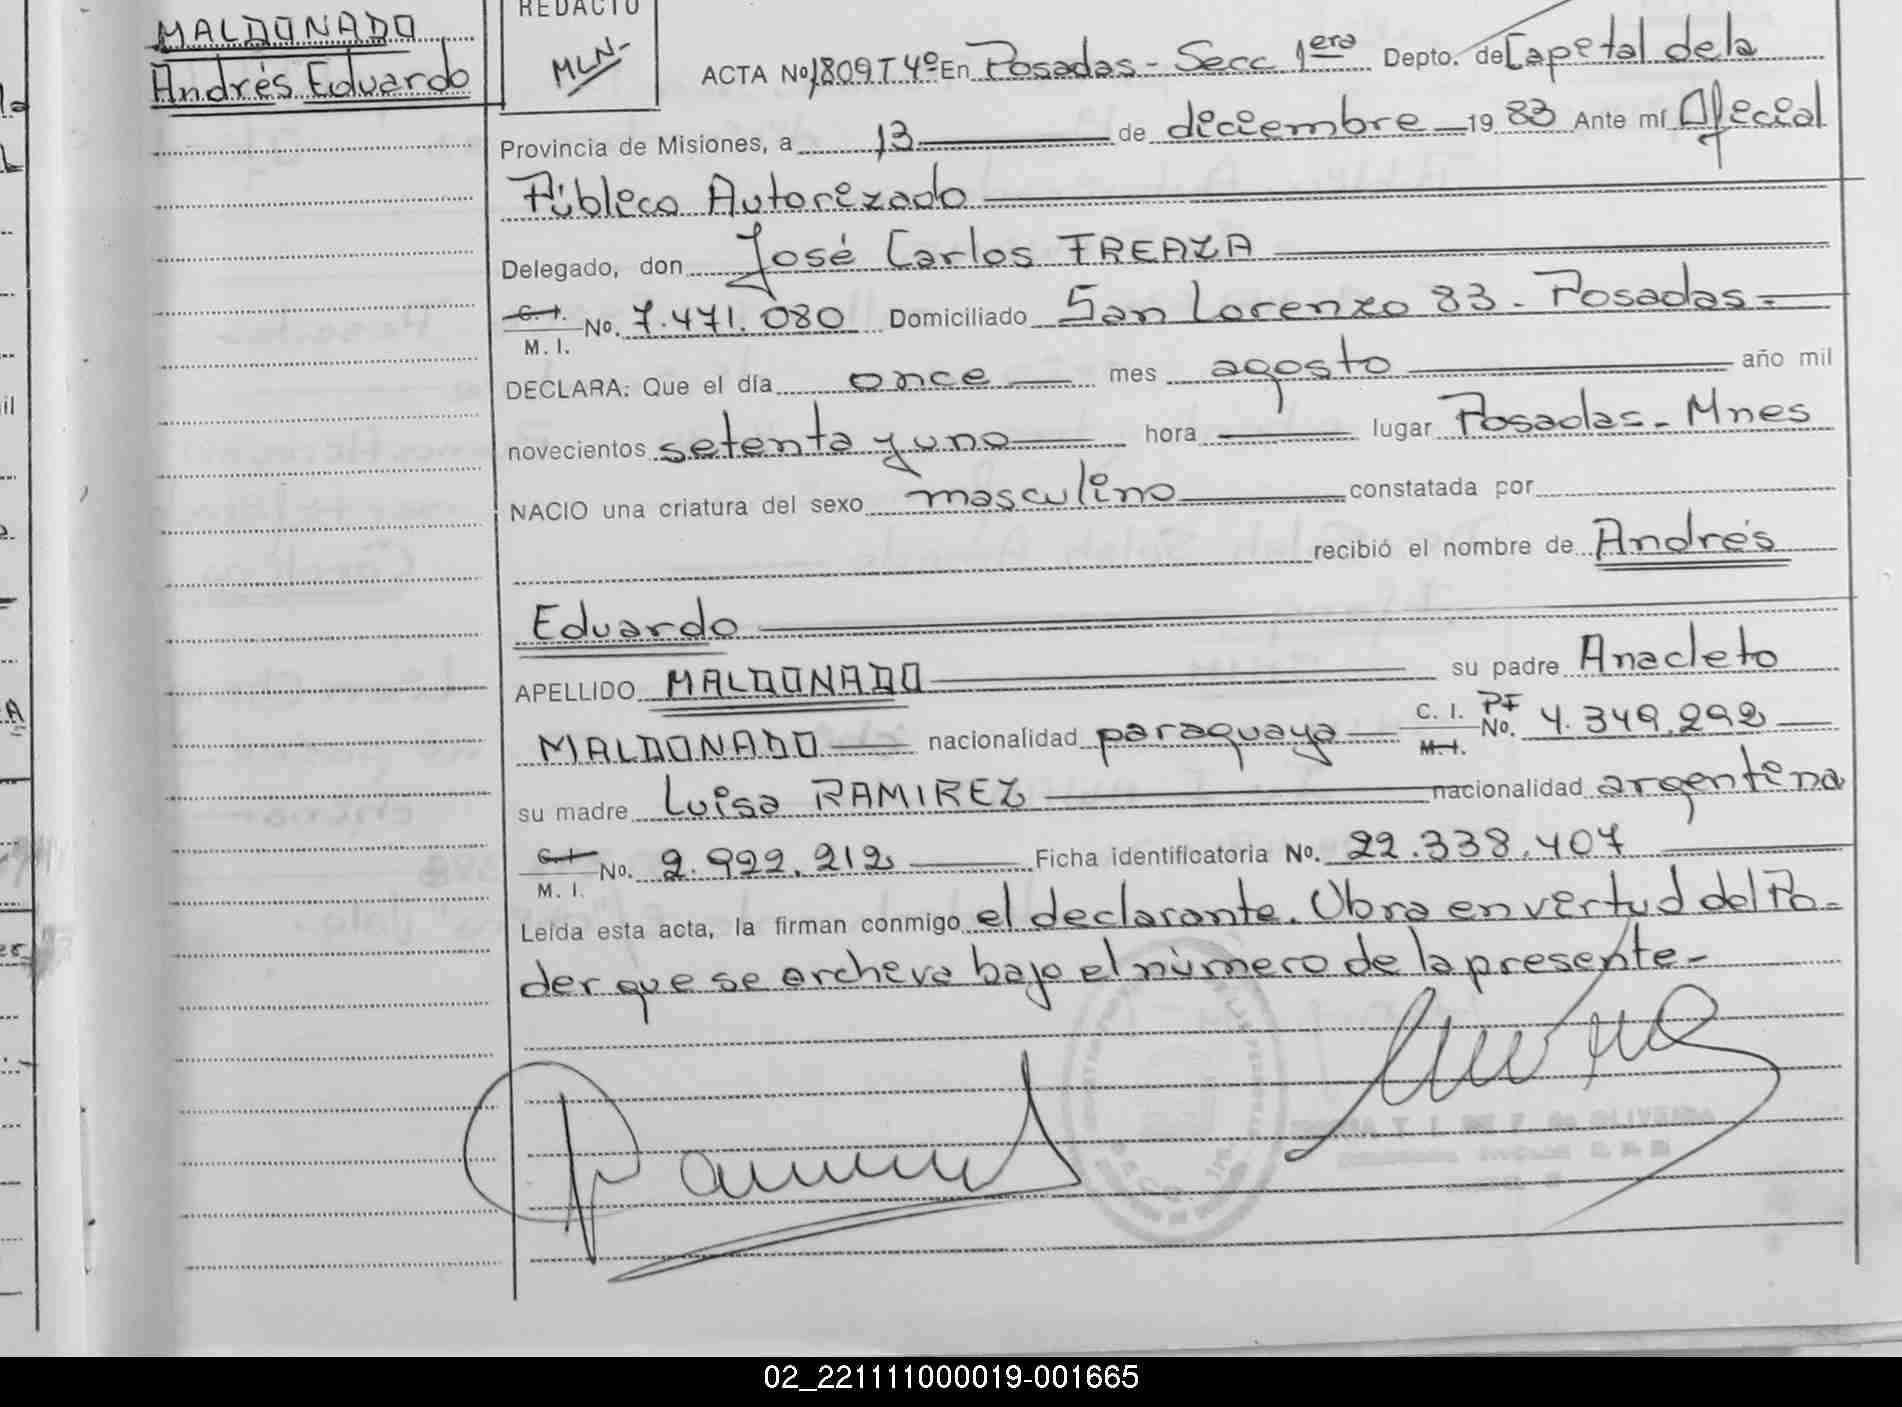 MALDONADO
Andrés Eduardo
REDACTO
MLN-
ACTA No 1809 T 4º En Posadas - Secc 1era Depto. de Capital de la
Provincia de Misiones, a 13 de diciembre 19 83 Ante mí Oficial
Público Autorizado
Delegado, don José Carlos FREAZA
C. I.
M. I. No. 7.471.080 Domiciliado San Lorenzo 83 - Posadas -
DECLARA: Que el día once mes agosto año mil
novecientos setenta y uno hora lugar Posadas - Mnes
NACIO una criatura del sexo masculino constatada por
recibió el nombre de Andrés
Eduardo
APELLIDO MALDONADO su padre Anacleto
MALDONADO nacionalidad paraguaya C. I. PF
M. I. No. 4.349.292
su madre Luisa RAMIREZ nacionalidad argentina
C. I.
M. I. No. 2.922.212 Ficha identificatoria No. 22.338.407
Leída esta acta, la firman conmigo el declarante. Obra en virtud del Po-
der que se archiva bajo el número de la presente -
02_221111000019-001665